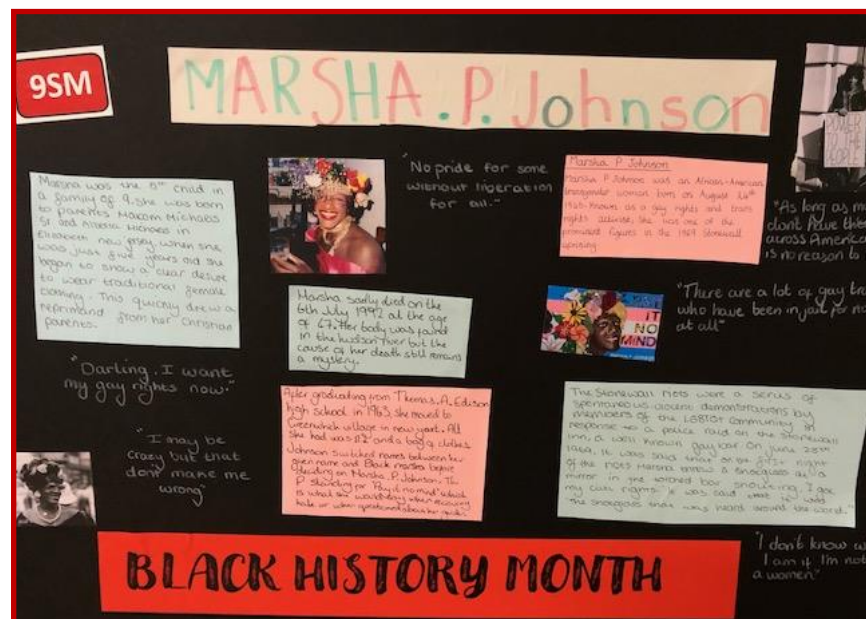 9SM
MARSHA.P. Johnson
POWER
TO THE
PEOPLE
Marsha was the 5th child in
a family of 9. she was born
to parents Malcom Michaels
Sr and Alberta Michaels in
Elizabeth new jersey, when she
was just five years old she
began to show a clear desire
to wear traditional female
clothing. This quickly drew a
reprimand from her Christian
parents.
"No pride for some
without liberation
for all."
Marsha P Johnson
Marsha P Johnson was an African-American
transgender woman born on August 24th
1945. Known as a gay rights and trans
rights activist, She was one of the
prominent figures in the 1969 Stonewall
uprising.
"As long as m
don't have thei
across America
is no reason to
Marsha sadly died on the
6th July 1992 at the age
of 47. Her body was found
in the hudson river but the
cause of her death still remains
a mystery.
IT
NO
MIND
"There are a lot of gay tra
who have been in jail for no
at all"
"Darling, I want
my gay rights now."
"I may be
crazy but that
don't make me
wrong"
After graduating from Thomas. A. Edison
high school in 1963, she moved to
Greenwich village in new york. All
she had was $12 and a bag of clothes.
Johnson switched names between her
given name and Black marsha before
deciding on Marsha. P. Johnson. The
P standing for 'Pay it no mind' which
is what she would say when recieving
hate or when questioned about her
The Stonewall riots were a series of
spontaneous violent demonstrations by
members of the LGBTQ+ community in
response to a police raid on the stonewall
inn, a well known gay bar on June 28th
1969. It was said that on the first night
of the riots Marsha threw a shotglass at a
mirror in the torched bar shouting, I got
my civil rights'. It was said that it was
the shotglass that was heard around the world."
"I don't know w
I am if I'm not
a women"
BLACK HISTORY MONTH